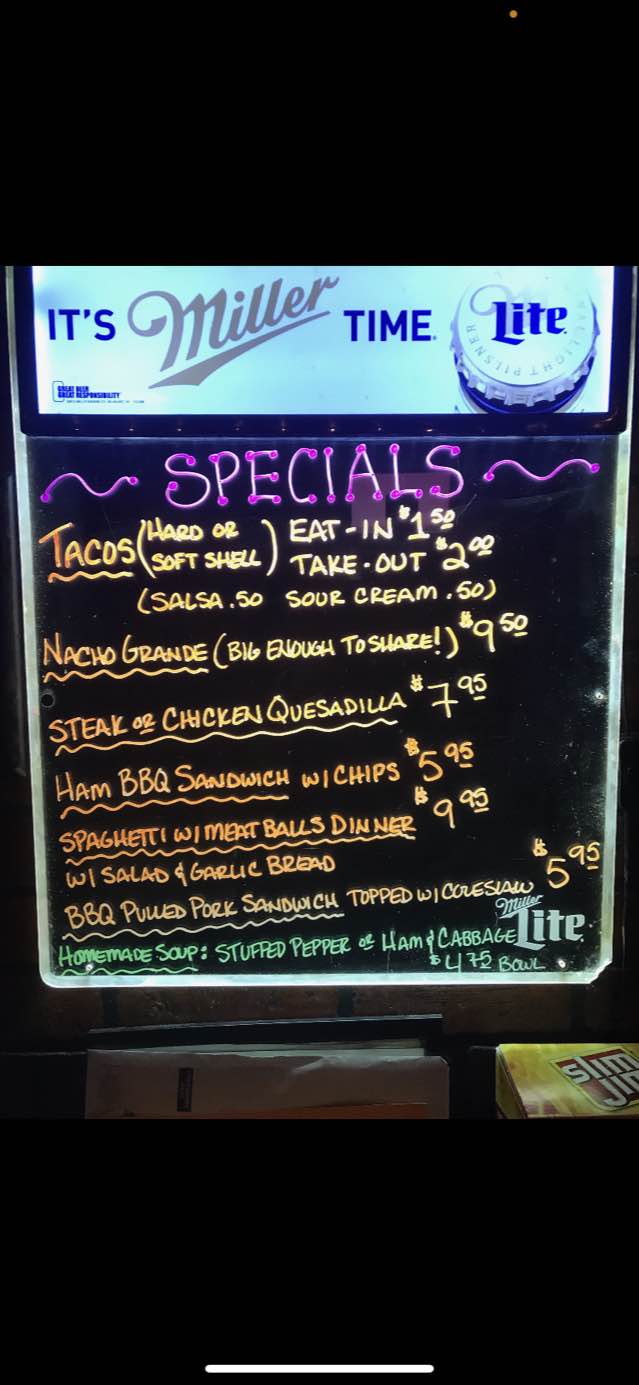 IT'S Miller TIME. Lite
GREAT BEER
GREAT RESPONSIBILITY
SPECIALS
TACOS (HARD OR SOFT SHELL) EAT-IN $1 50
TAKE-OUT $2 00
(SALSA .50 SOUR CREAM .50)
NACHO GRANDE (BIG ENOUGH TO SHARE!) $9 50
STEAK OR CHICKEN QUESADILLA $7 95
HAM BBQ SANDWICH W/ CHIPS $5 95
SPAGHETTI W/ MEATBALLS DINNER $9 95
W/ SALAD & GARLIC BREAD
BBQ PULLED PORK SANDWICH TOPPED W/ COLESLAW $5 95
Miller Lite
HOMEMADE SOUP: STUFFED PEPPER OR HAM & CABBAGE
$4 75 BOWL
Slim Jim